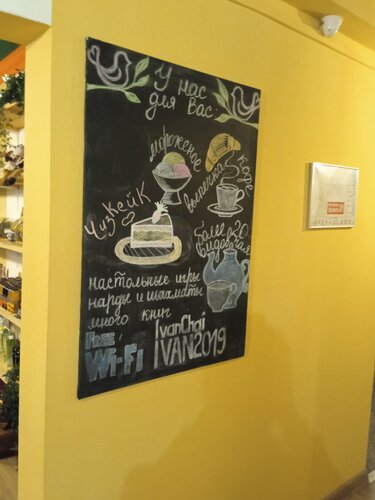 У нас
для вас:
мороженое
выпечка
кофе
ЧизКейК
более 20
видов чая
настольные игры
нарды и шахматы
много книг
FREE
Wi-Fi
IvanChai
IVAN2019